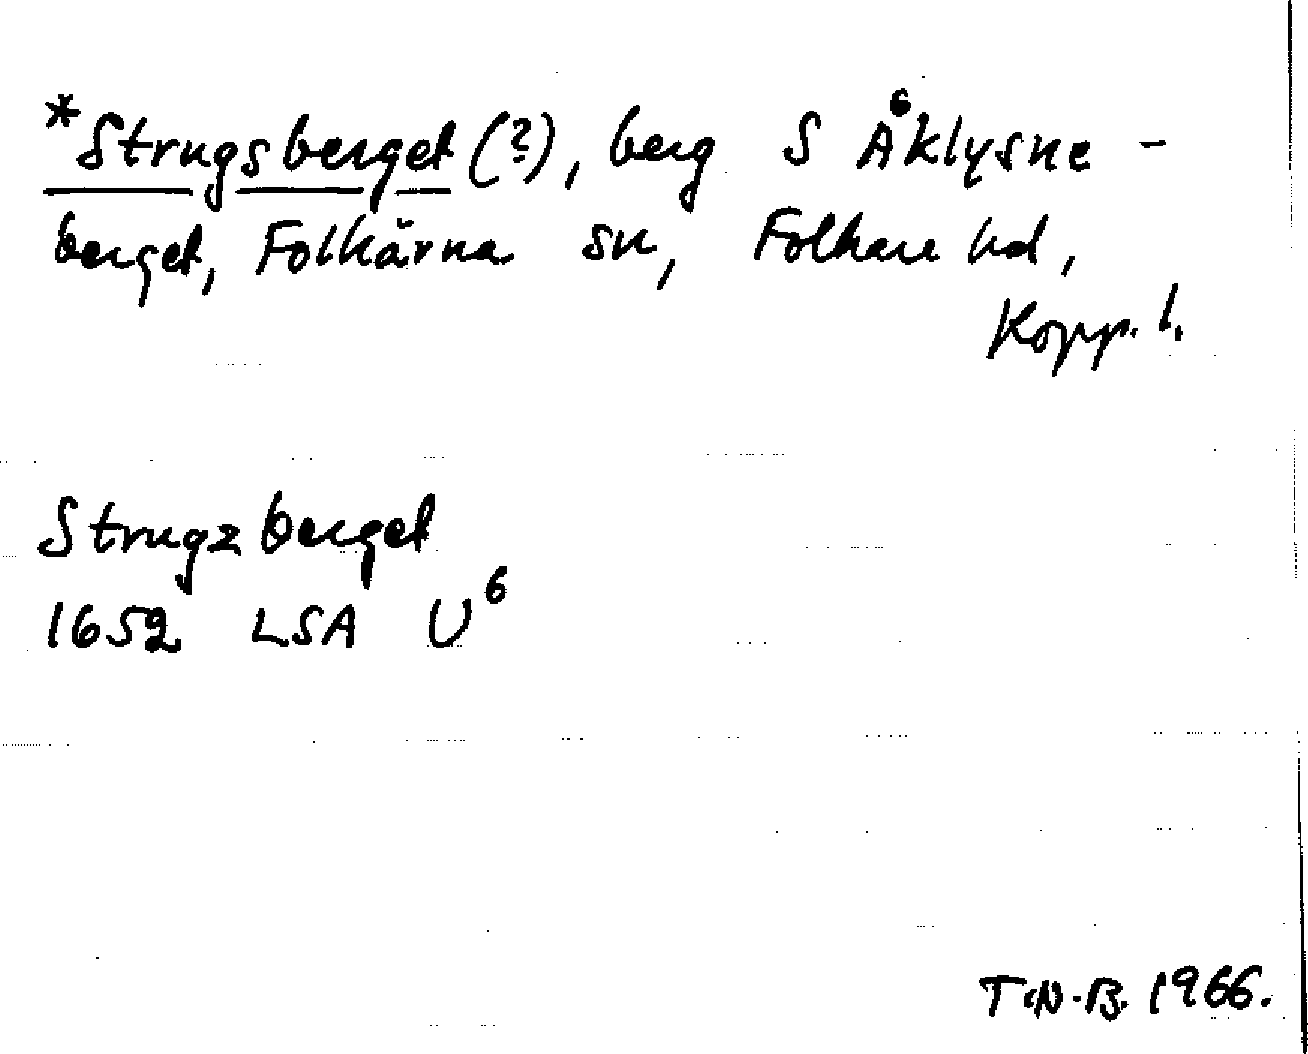 *Strugsberget (?), berg S Åklysne-
berget, Folkärna sn, Folkare hd,
Kopp. l.
Strugzberget
1652 LSA U⁶
T.N.B. 1966.